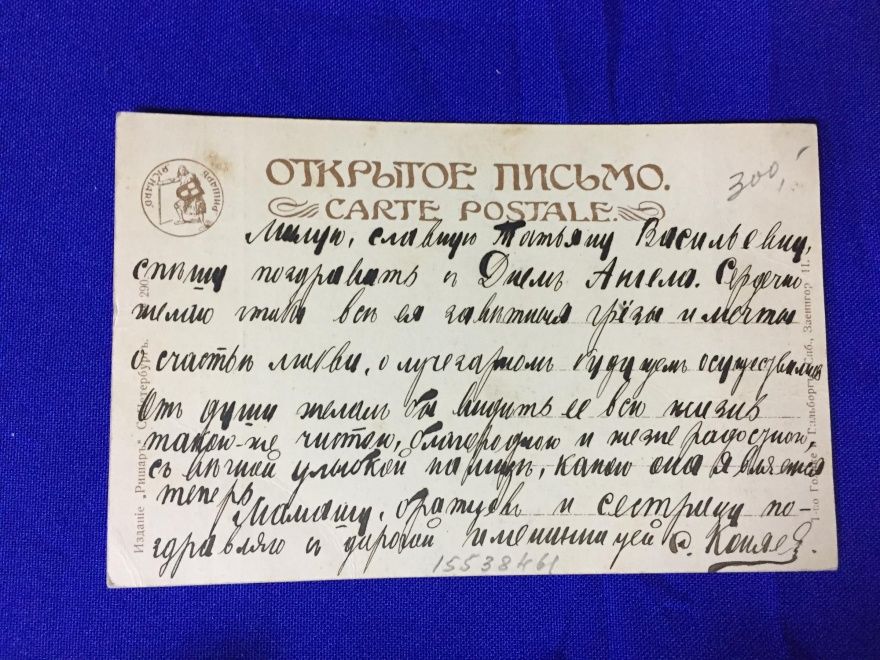 РИШАРЪ
РИШАРЪ
ОТКРЫТОЕ ПИСЬМО.
CARTE POSTALE.
300,-
Милую, славную Татьяну Васильевну,
спѣшу поздравить съ Днемъ Ангела. Сердечно
желаю чтобы всѣ ея завѣтныя грёзы и мечты
о счастьи любви, о лучезарномъ будущемъ осуществились
Отъ души желалъ бы видѣть ее всю жизнь
такою-же чистою, благородною и жизнерадостной,
съ вѣчной улыбкой на лицѣ, какою она является
теперь
Мамашу, братцевъ и сестрицу по-
здравляю съ дорогой именинницей
15538461
Изданіе „Ришаръ" С. Петербургъ. № 290
Т-во Голике и Вильборгъ. Спб., Звенигор